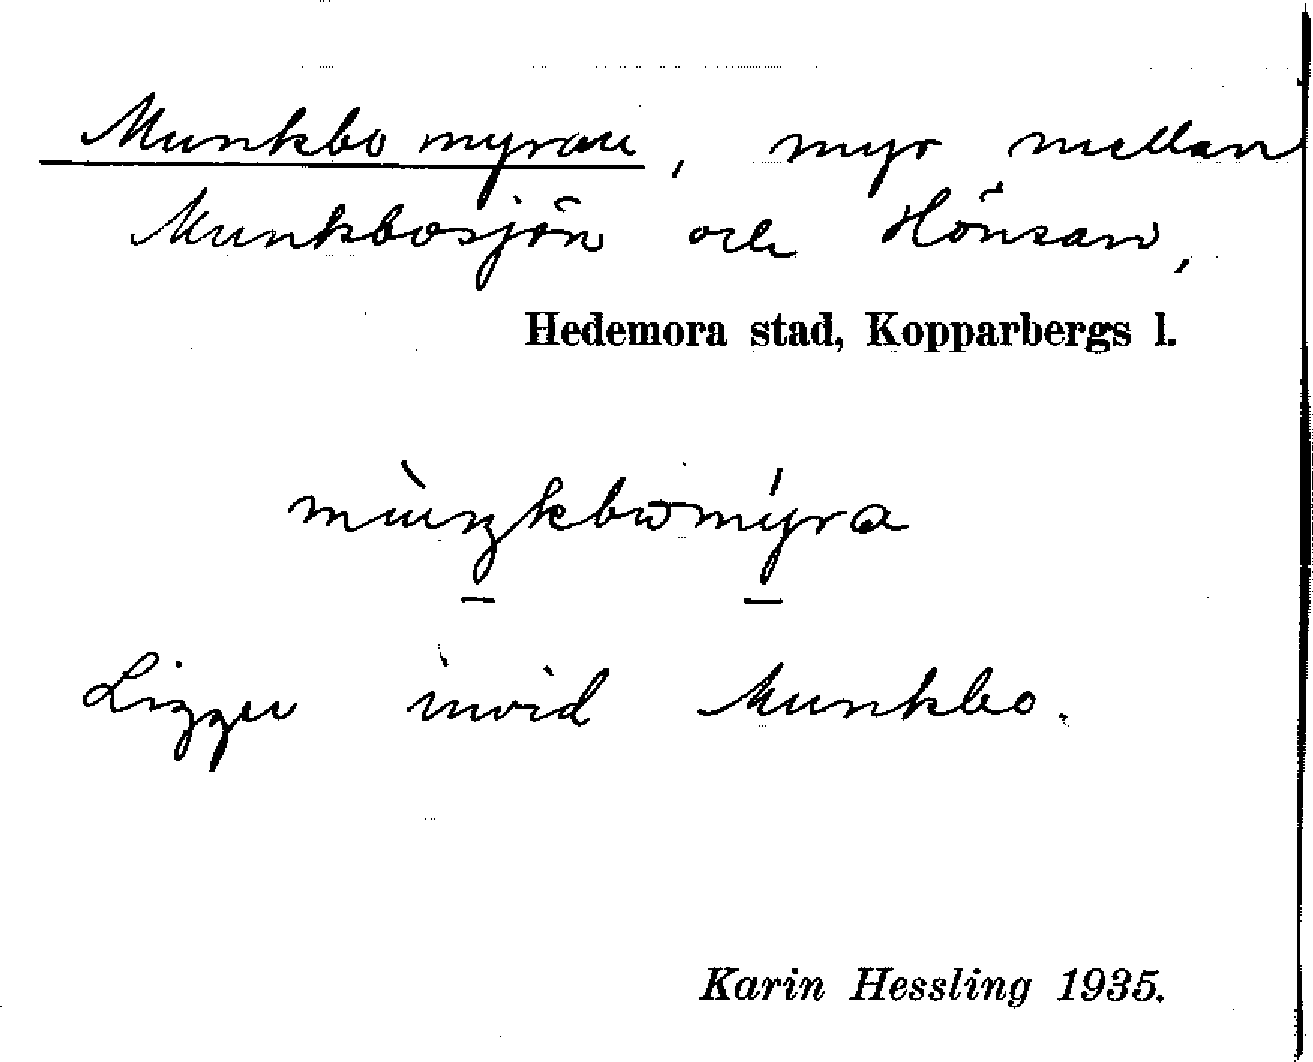 Munkbo myran, myr mellan
Munkbosjön och Hönsan,
Hedemora stad, Kopparbergs l.
mùŋkbωmýra
Ligger invid Munkbo.
Karin Hessling 1935.